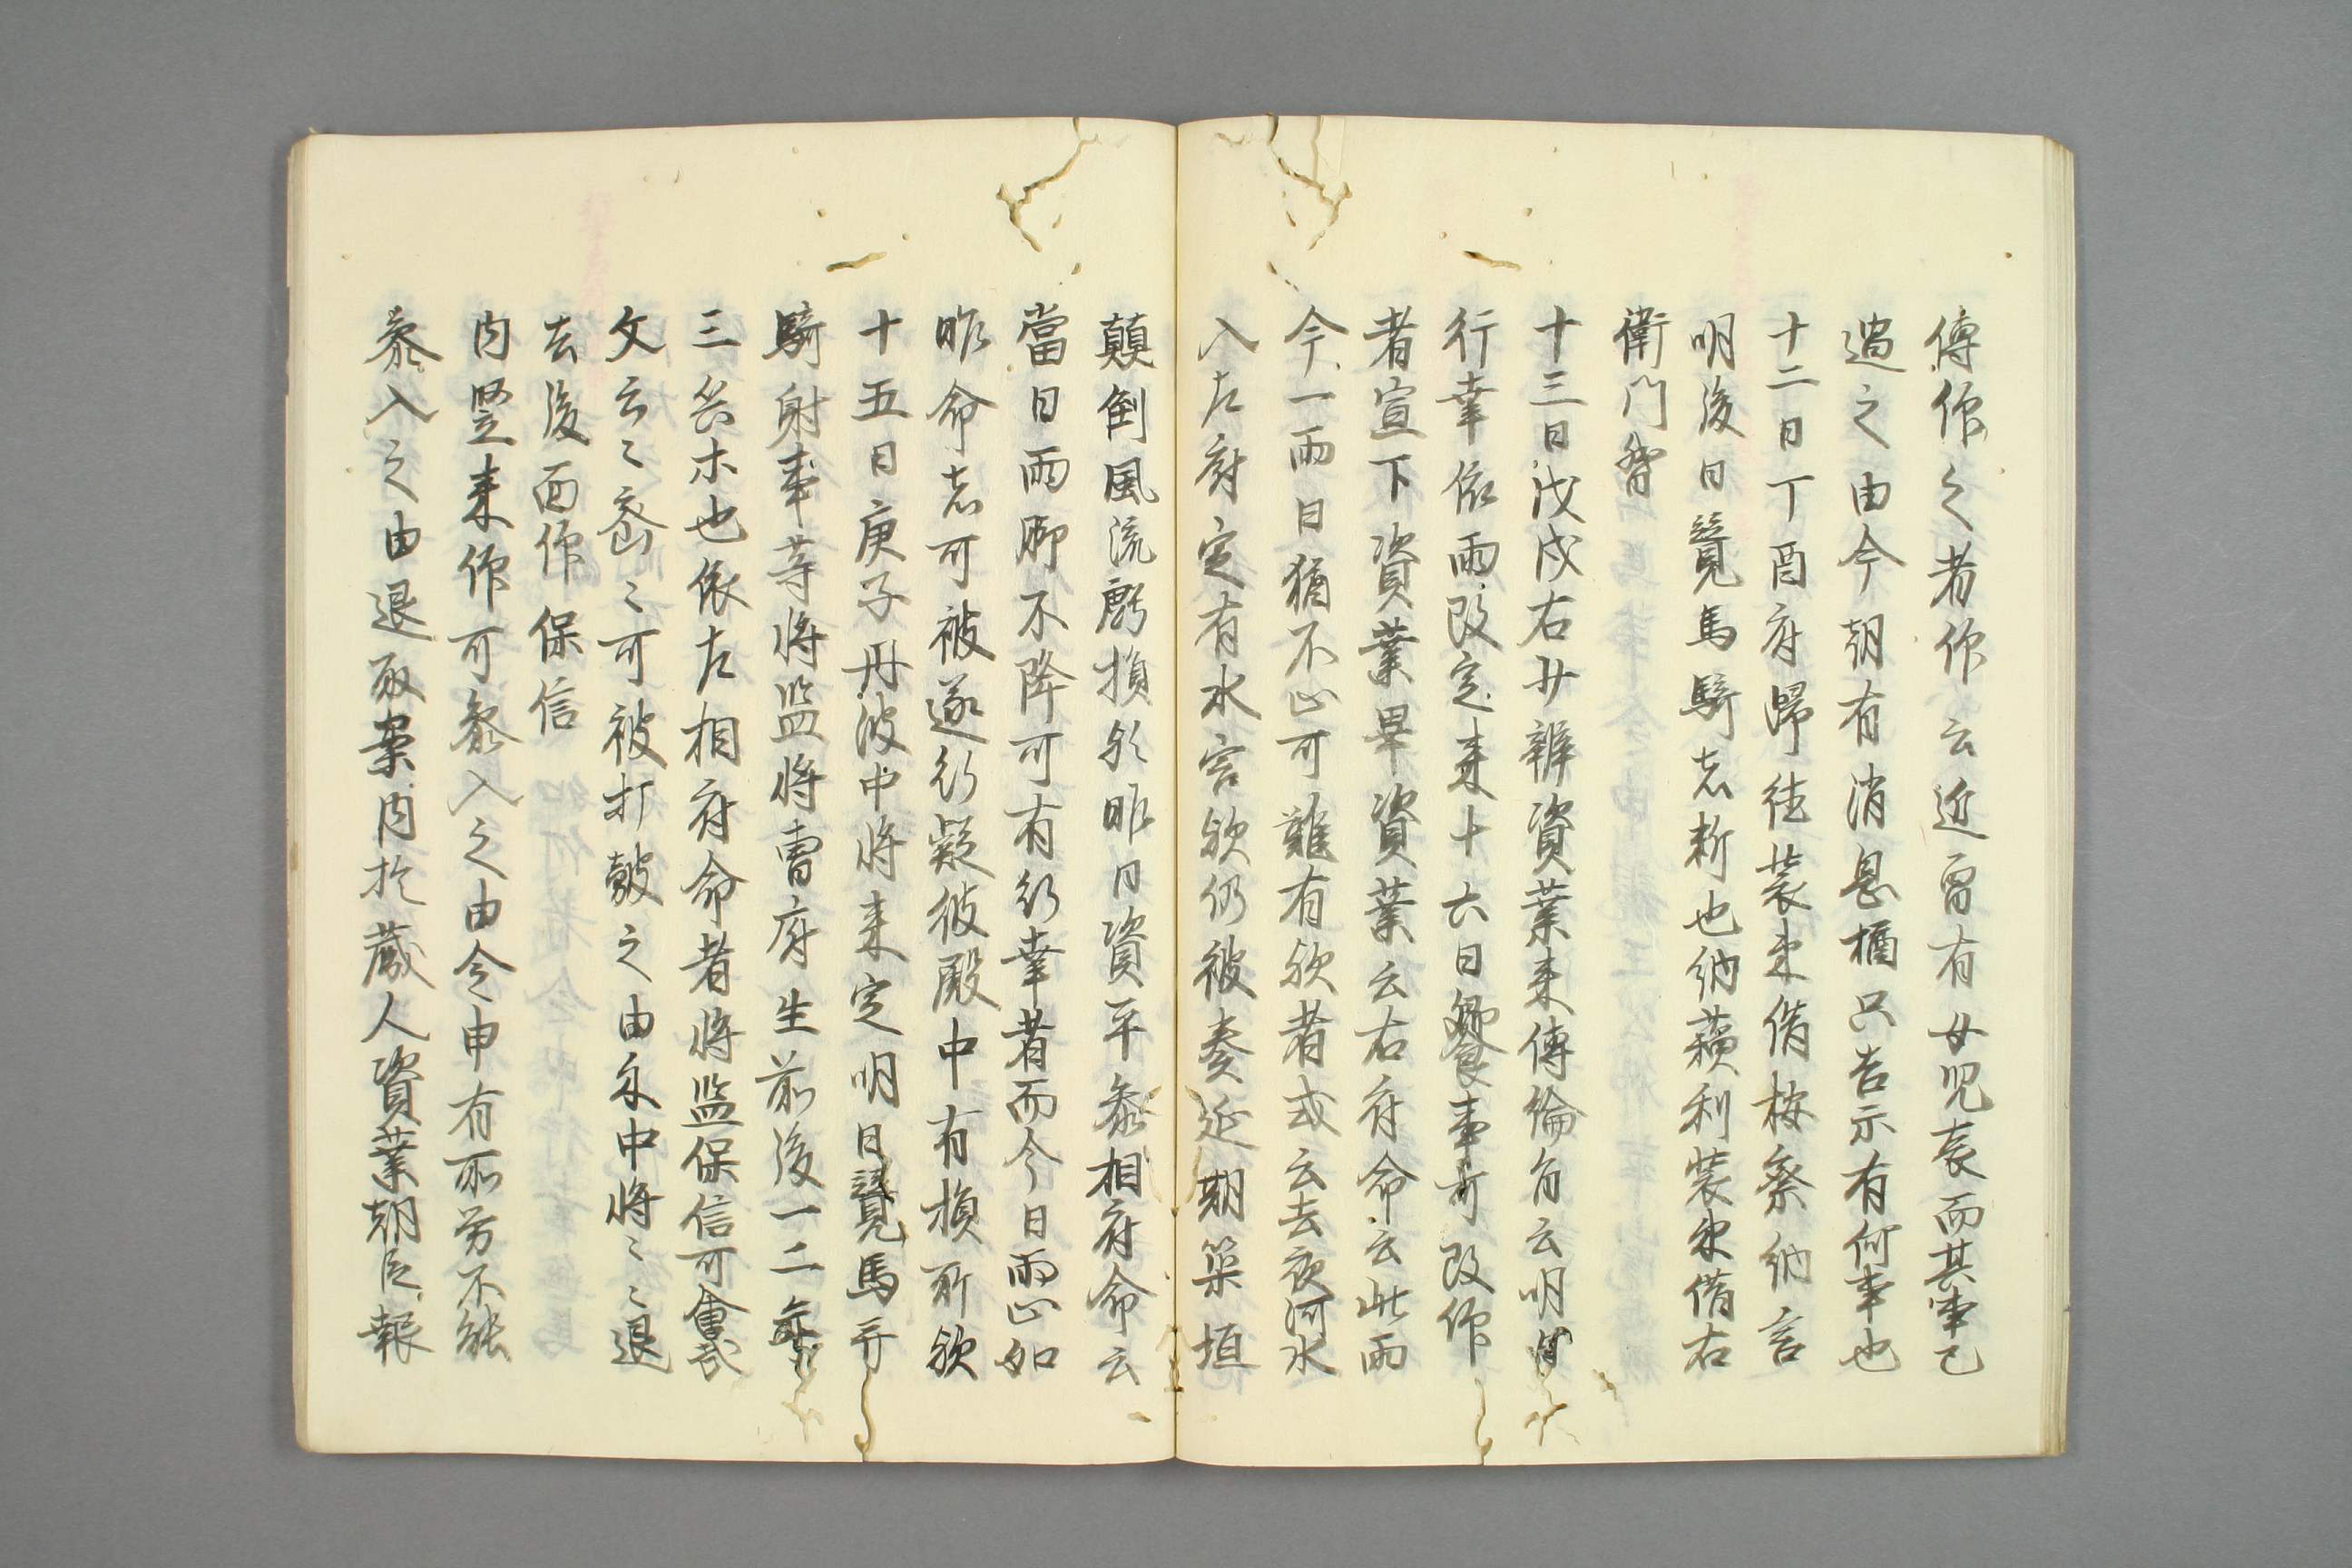 傳作之者作云近曽有女児喪而其事已
過之由今朝有消息楯只告示有何事也
十二日丁酉府歸徃裝束借按察納言
明後日覧馬騎志新也納蘓利裝束借右
衛門督
十三日戊戌右廾辨資業来傳倫旨云明日
行幸依雨改定来十六日饗事可改作
者宣下資業畢資業云右府命云此雨
今一両日猶不止可難有欤者或云去夜河水
入左府定有水害欤仍被奏延期築垣
顛倒風流虧損欤昨日資平参相府命云
當日雨脚不降可有行幸者而今日雨止如
昨命志可被遂行疑彼殿中有損所欤
十五日庚子丹波中将来定明日覧馬并
騎射事等将監将曹府生前後一二
三各木也依左相府命者将監保信可會武
文云々密々可被打皷之由条中将々々退
去後面作保信
内竪来作可参入之由令申有所労不能
参入之由退取案内於蔵人資業朝臣報